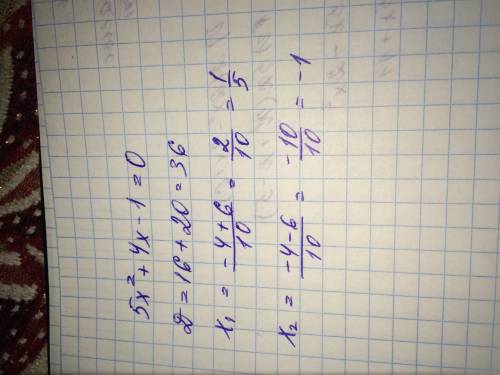 5x² + 4x - 1 = 0
D = 16 + 20 = 36
x₁ = (-4+6)/10 = 2/10 = 1/5
x₂ = (-4-6)/10 = -10/10 = -1